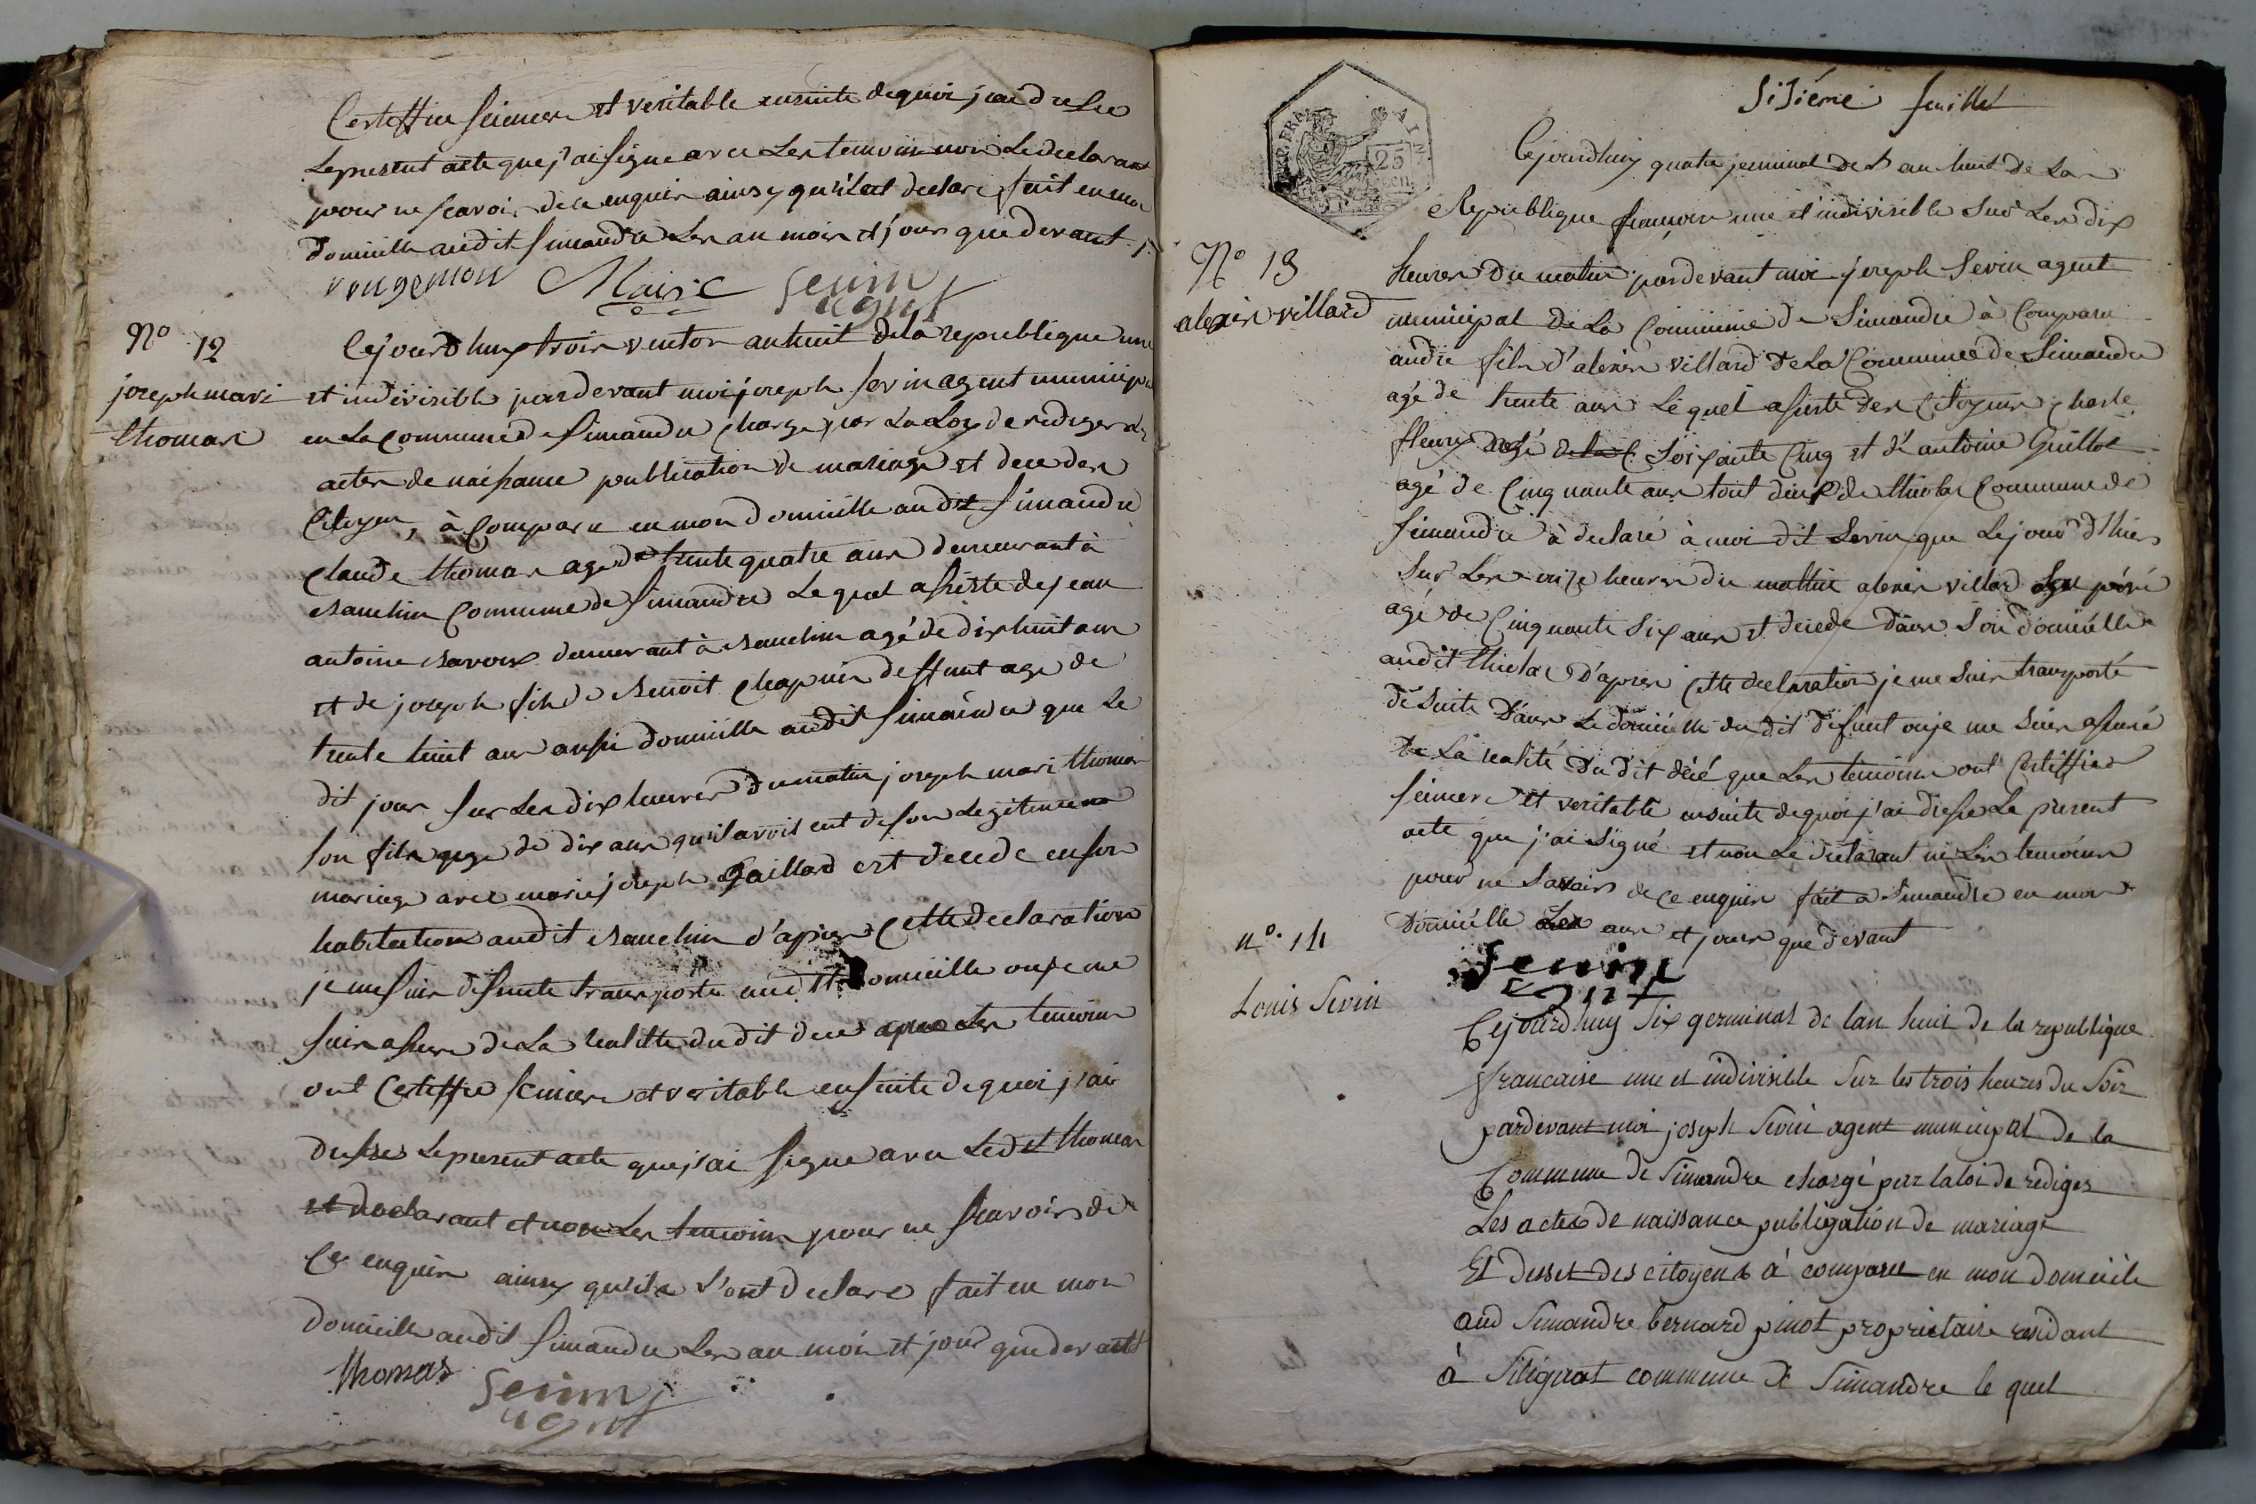 Certiffier sincere et veritable ensuite dequoi j'ai dressé
Lepresent acte que j'ai signe avec Les temoins non Le declarant
pour ne scavoir de ce enquir ainsy qu'il at declare fait en mon
domicille audit simandre Les an mois et jours que devant
rougemon Maire sevin
agent
N° 12
joseph mari
thomas
Cejourdhuy trois ventos an huit dela republique une
et indivisible pardevant moi joseph sevin agent municipal
en La commune de simandre charge par La Loy de rediger Les
actes de naissance publication de mariage et deces des
Citoyen, à comparu en mon domicille audit simandre
Claude thomas age de trente quatre ans demeurant à
commune de simandre Le quel assiste de jean
antoine savoux demeurant à agé de dix huit ans
et de joseph fils de benoit chapuis deffunt age de
trente huit ans aussi domicille audit simandre que Le
dit jour sur Les dix heures du matin joseph mari thomas
son fils age de dix ans qu'il avoit eut de son Legitime
mariage avec marie joseph Gaillard est decede en son
habitation audit d'apres Cette declaration
je me suis desuite transporte audit domicille ou je me
suis assure de La realitte du dit deces que Les temoins
ont Certiffie sincere et veritable ensuite de quoi j'ai
dresse Le present acte que j'ai signe avec Ledit thomas
et declarant et non Les temoins pour ne scavoir de
Ce enquir ainsy qu'ils L'ont declare fait en mon
domicille audit simandre Les an mois et jour que devant
thomas sevin
agent
sisiéme feuillet
REP. FRA
25
CEN.
Cejourdhuy quatre jerminal de L an huit de La
Republique francoise une et indivisible sur Les dix
N° 13
alexis villard
heures du matin pardevant moi joseph sevin agent
municipal de La Commune de Simandre à Comparu
andre fils d'alexis villard de La Commune de Simandre
agé de trente ans Le quel assisté des Citoyens charle
fleury agé de la C. soixante Cinq et d'antoine Guillot
agé de Cinquante ans tout deux de thiolas Commune de
simandre à declaré à moi dit sevin que Le jour d'hier
sur Les onze heures du mattin alexis villard son péré
agé de Cinquante six ans et decede dans son domicille
audit thiolas D'apres cette declaration je me suis transporté
de suite dans Le domicille du dit défunt ou je me suis assuré
de La realité du dit décé que Les témoins ont Certiffier
sincere et veritable ensuite dequoi j'ai dressé Le present
acte que j'ai signé et non Le déclarant ni Les temoins
pour ne savoir de ce enquir fait a simandre en mon
Domicille Les ans et jours que devant
sevin
agent
n°. 14
Louis Sevin
Cejourdhuy six germinal de lan huit de la republique
francaise une et indivisible sur les trois heures du soir
pardevant moi joseph Sevin agent municipal de la
Commune de Simandre chargé par la loi de rediger
Les actes de naissance publigation de mariage
Et desset des citoyens à comparu en mon domicile
aud Simandre bernard pinot proprietaire residant
à Silignat commune de Simandre le quel